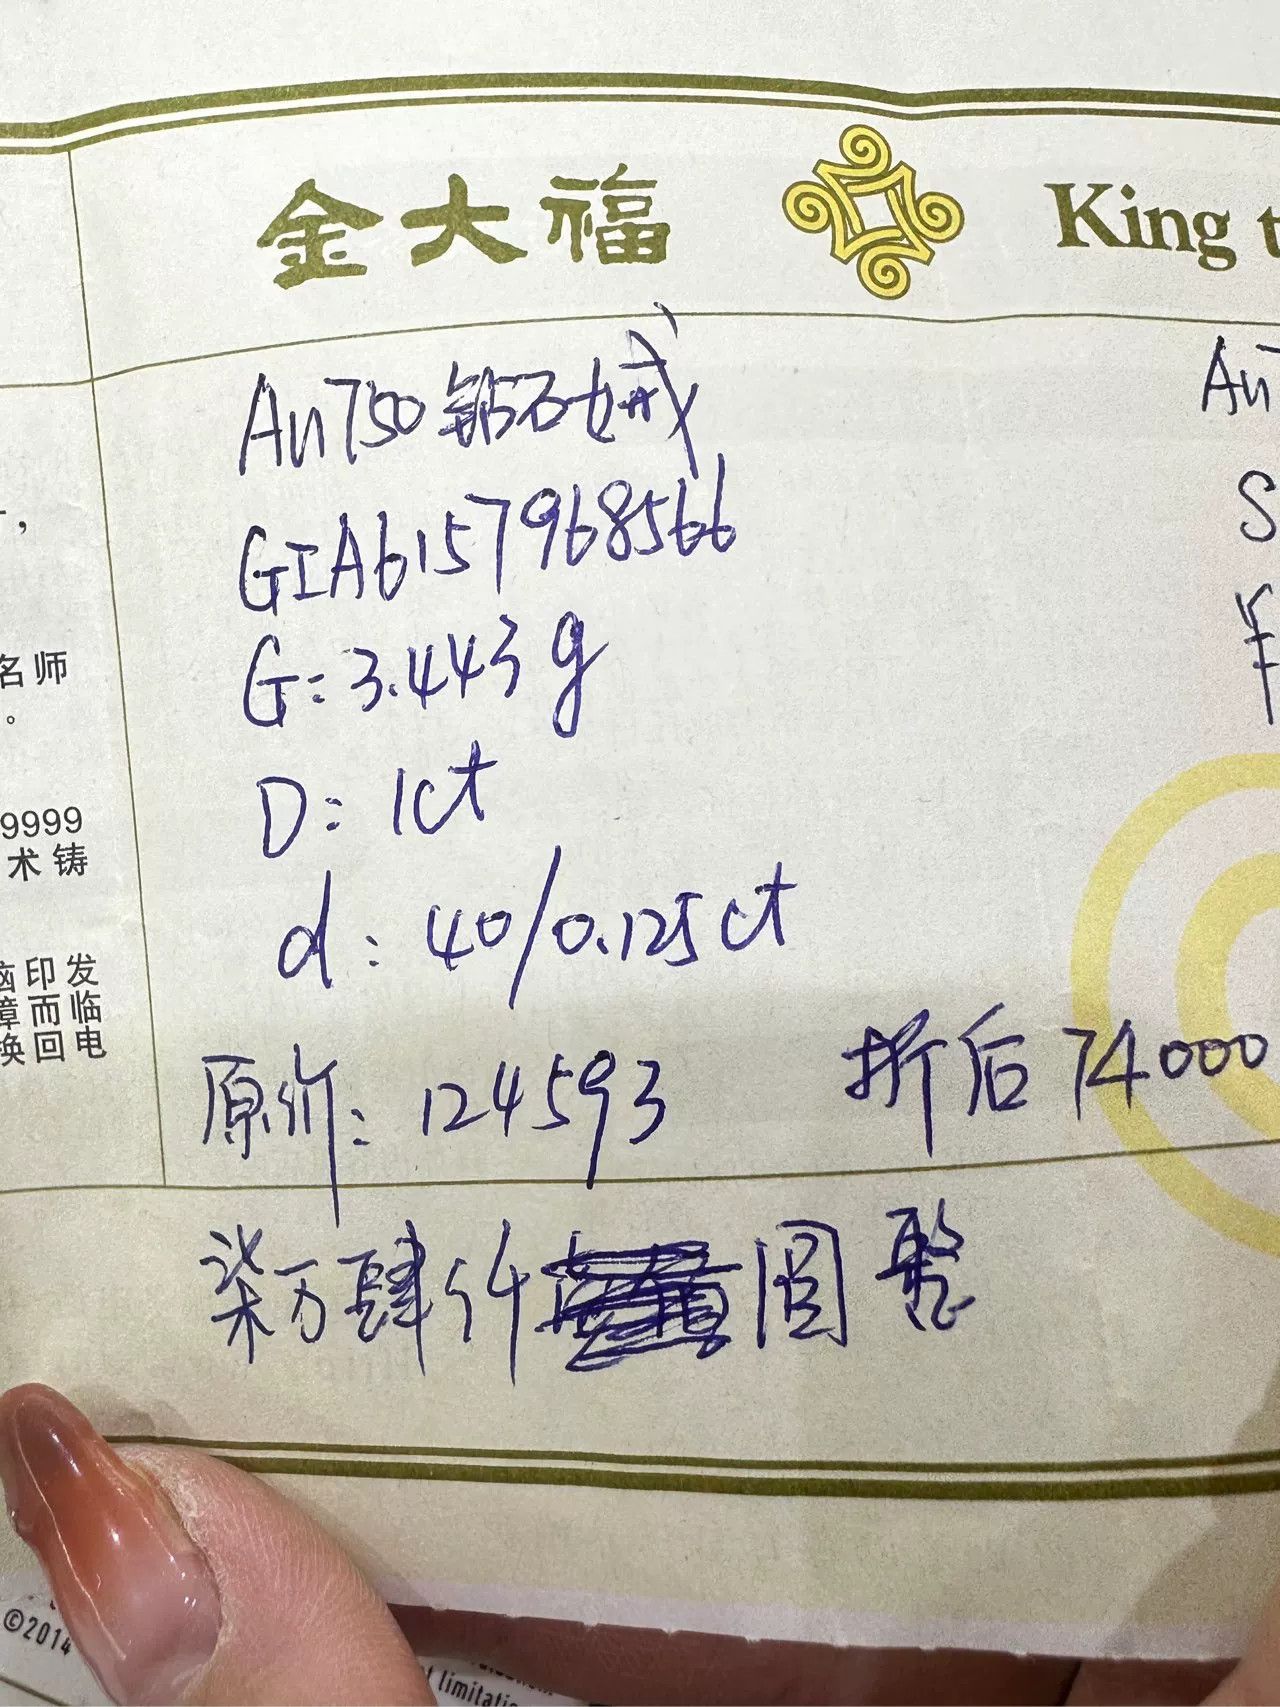 金大福 King t
Au750钻石女戒
GIA6157968566
G:3.443g
D:1ct
d:40/0.125ct
原价:124593 折后74000
柒万肆仟 圆整
Au7
S
¥
,
名师
。
9999
术铸
印发
章而临
换回电
©2014
limitati